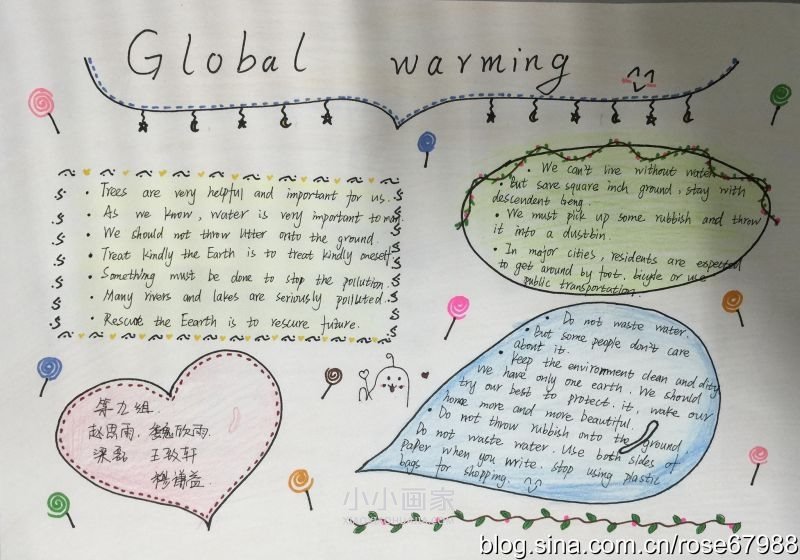 Global warming
• Trees are very helpful and important for us.
• As we know, water is very important to man
• We should not throw litter onto the ground.
• Treat kindly the Earth is to treat kindly oneself
• Something must be done to stop the pollution.
• Many rivers and lakes are seriously polluted.
• Rescue the Eearth is to rescure future.
• We can't live without water
• But save square inch ground, stay with
descendent being.
• We must pick up some rubbish and throw
it into a dustbin.
• In major cities, residents are expected
to get around by foot. bicycle or use
public transportation.
• Do not waste water.
• But some people don't care
about it.
• keep the environment clean and dity
We have only one earth. We should
try our best to protect. it, wake our
home more and more beautiful.
• Do not throw rubbish onto the ground
Do not waste water. Use both sides of
paper when you write. stop using plastic
bags for shopping.
第九组.
赵思雨. 魏欣雨.
梁磊 王孜轩
穆谦益.
小小画家
blog.sina.com.cn/rose67988